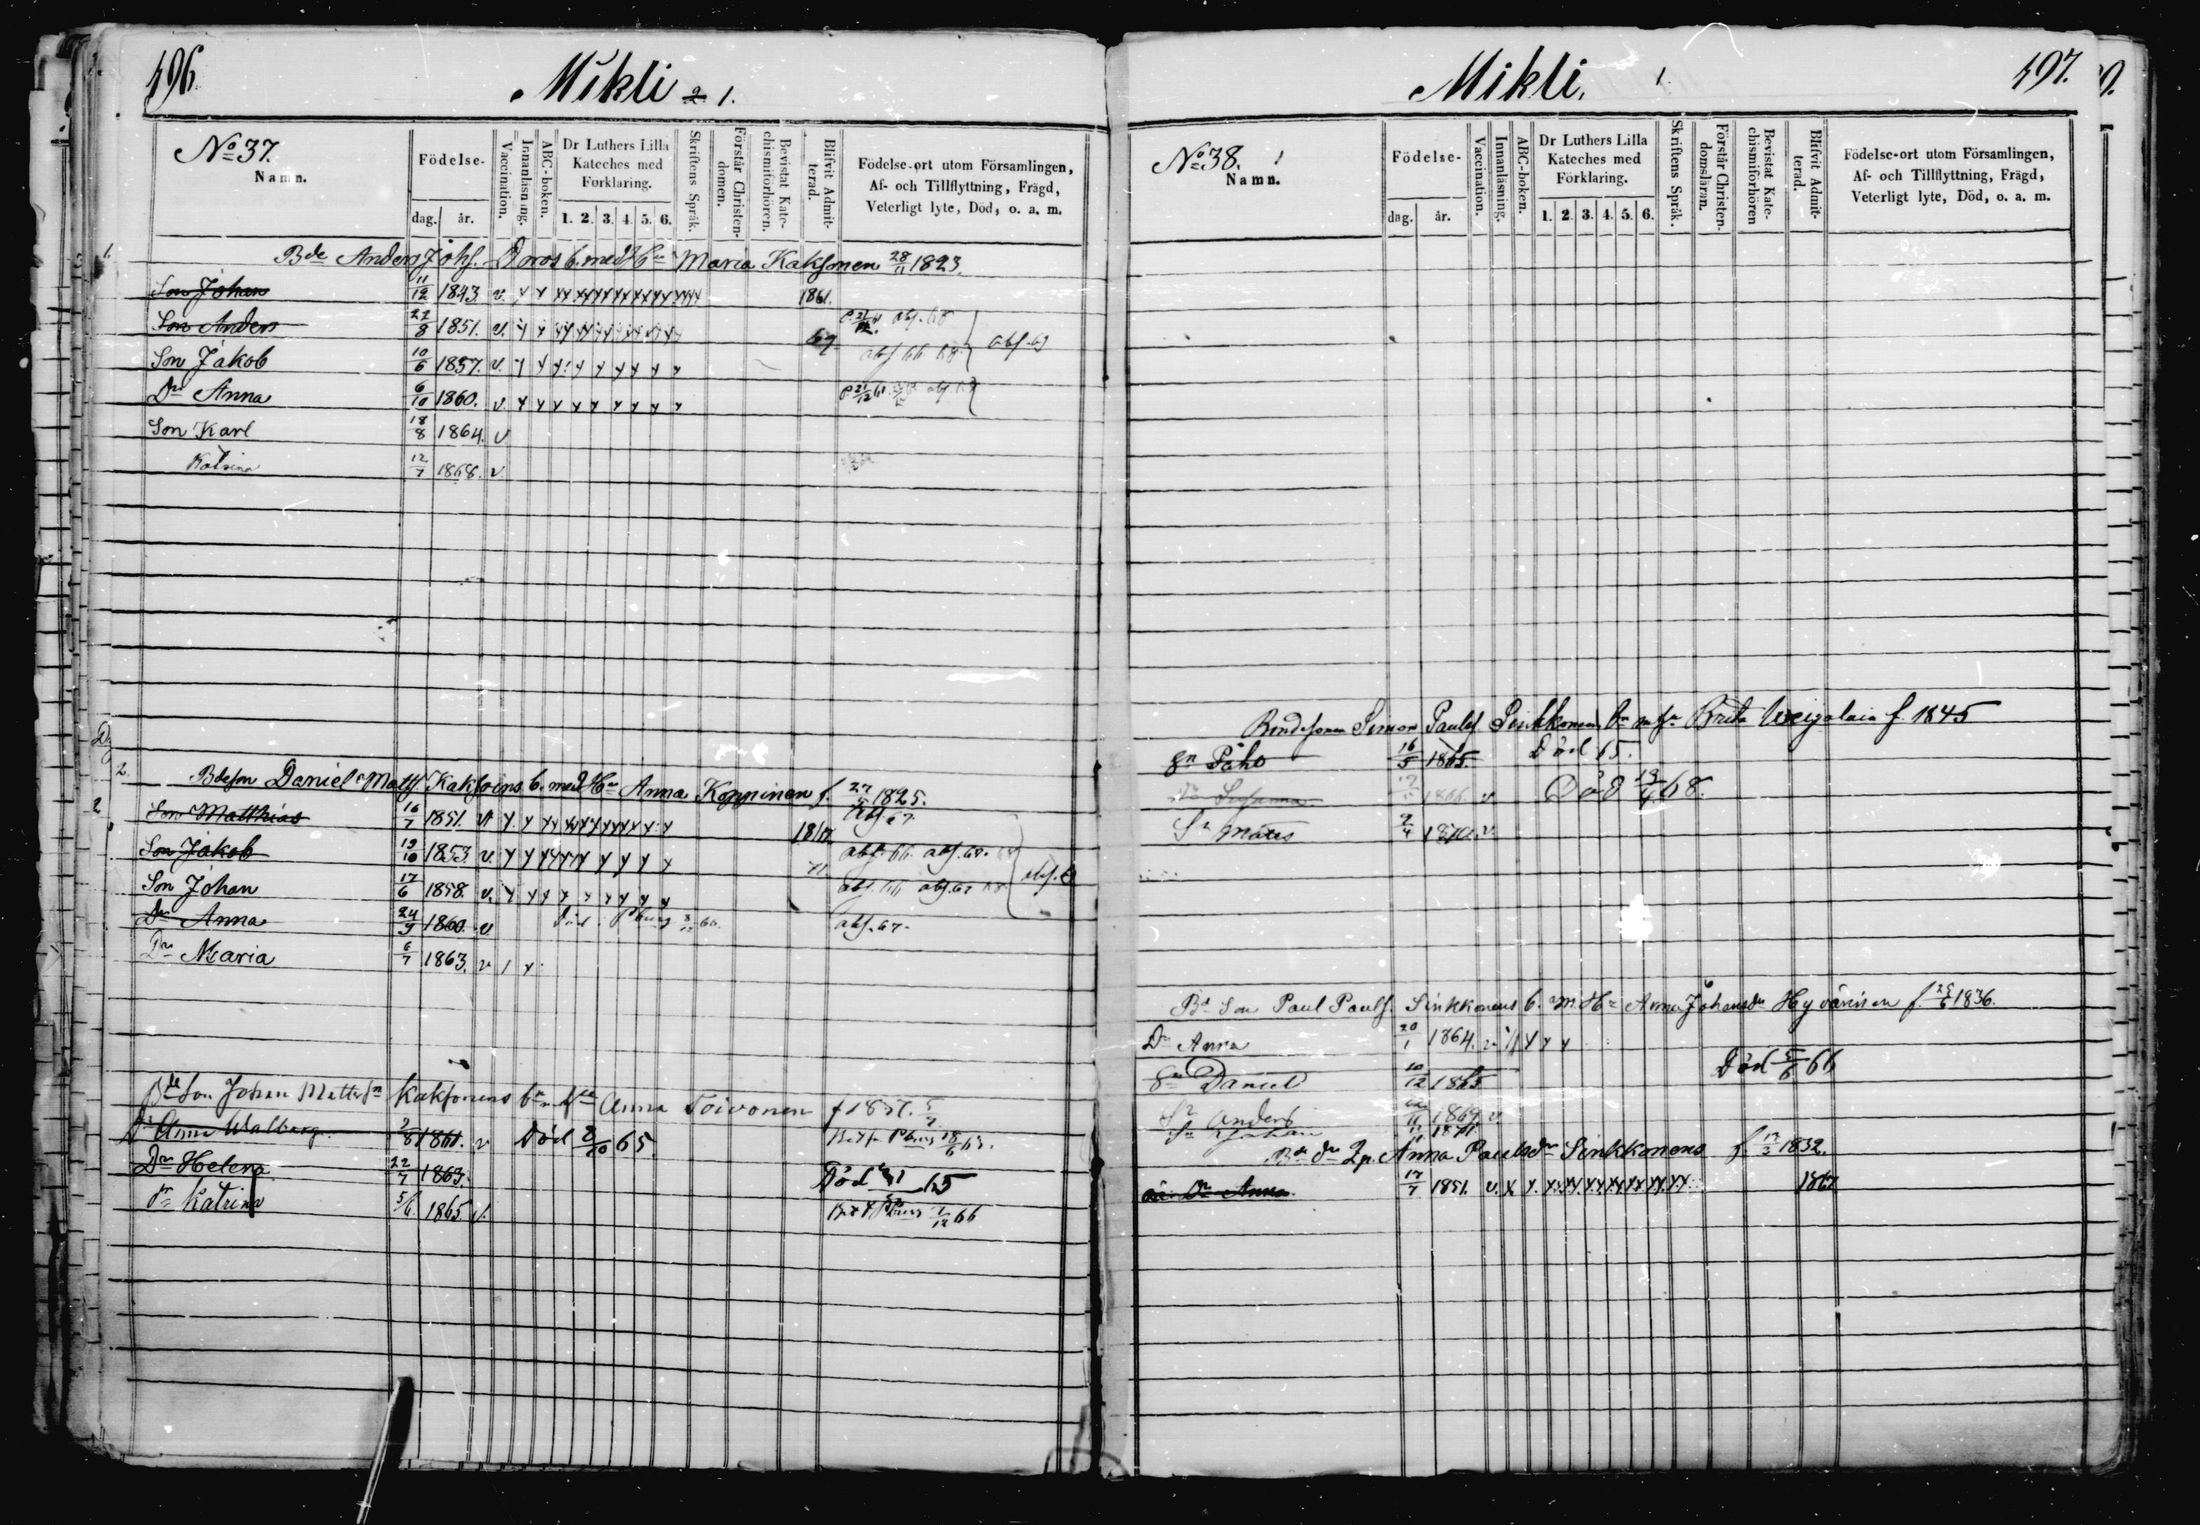 496.
Mikli 2 1.
No 37.
Namn.
Födelse-
dag. år.
Vaccination.
Innanläsning.
ABC-boken.
Dr Luthers Lilla Kateches med Förklaring.
1. 2. 3. 4. 5. 6.
Skriftens Språk.
Förstår Christendomen.
Bevistat Katechismiförhören.
Blifvit Admitterad.
Födelse-ort utom Församlingen,
Af- och Tillflyttning, Frägd,
Veterligt lyte, Död, o. a. m.
1. Bde Anders Johs. Doros b. med Hu Maria Kaksonen 28/11 1823
Son Johan 11/12 1843 v. 1861.
Son Anders 22/8 1851. v. 67 abs. 68
Son Jakob 10/6 1857. v. abs 66 68 abs. 69
Dr Anna 6/10 1860. v
Son Karl 18/8 1864. v
Katrina 12/7 1868. v
2. Bdeson Daniel Matts. Kaksoins b. med Hu Anna Kopninen f. 27/ 1825.
2 Son Matthias 16/7 1851. v abs 67
Son Jakob 19/10 1853 v 71 abs. 66. abs. 68.
Son Johan 17/6 1858. v. abs. 67
Dr Anna 24/9 1860. v Död Pburg abs. 67.
Dr Maria 6/7 1863. v
Bde Son Johan Matts Kaksonens Anna Toivonen f 1837.
Dr Anna Walborg 2/8 1861. v Död 2/10 65. Pburg 18/6 63.
Dr Helena 22/7 1863. Död 65
Dr Katrina 5/6 1865 v. Pburg 1/12 66
Mikli. 1.
497.
No 38. 1
Namn.
Födelse-
dag. år.
Vaccination.
Innanläsning.
ABC-boken.
Dr Luthers Lilla Kateches med Förklaring.
1. 2. 3. 4. 5. 6.
Skriftens Språk.
Förstår Christendomsläran.
Bevistat Katechismiförhören
Blifvit Admitterad.
Födelse-ort utom Församlingen,
Af- och Tillflyttning, Frägd,
Veterligt lyte, Död, o. a. m.
Bondesonen Simon Pauls. Sinkkonens Brita f. 1845
Sn Påho 16/5 1865. Död 65.
Dr Susanna 1866. v Död 19/4 68.
Sn Mattes 2/4 1870. v.
Bde Son Paul Pauls. Sinkkonens b. m. Hu Anna Johansdr Hyvärisen f. 25/6 1836.
Dr Anna 20/1 1864. v
Sn Daniel 10/12 1865 Död 5/6 66
Sn Anders 1869. v.
Sn Johan 1871
Bde dr Anna Paulsdr Sinkkonens f. 1832.
oä. Dr Anna 17/7 1851. v. 1867